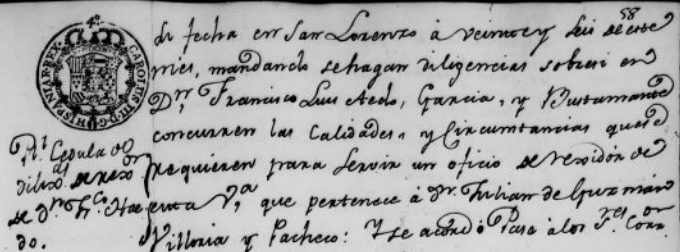 58
4º
CAROLUS III D G HISPANIAR REX
de fecha en San Lorenzo à veintey seis de este
mes, mandando sehagan diligencias sobresi en
Dn. Francisco Luis Aedo, Garcia, y Bustamante
concurren las Calidades, y Circumtancias quese
requieren para servir un oficio de rexidor de
esta Va. que pertenece à Dn. Julian de Guzman
Villoria y Pacheco: Y se acordò Pase alos Sres. Corr.or
Rl. Cedula de
dilixas. de rexor
de Dn. Fco.
do.